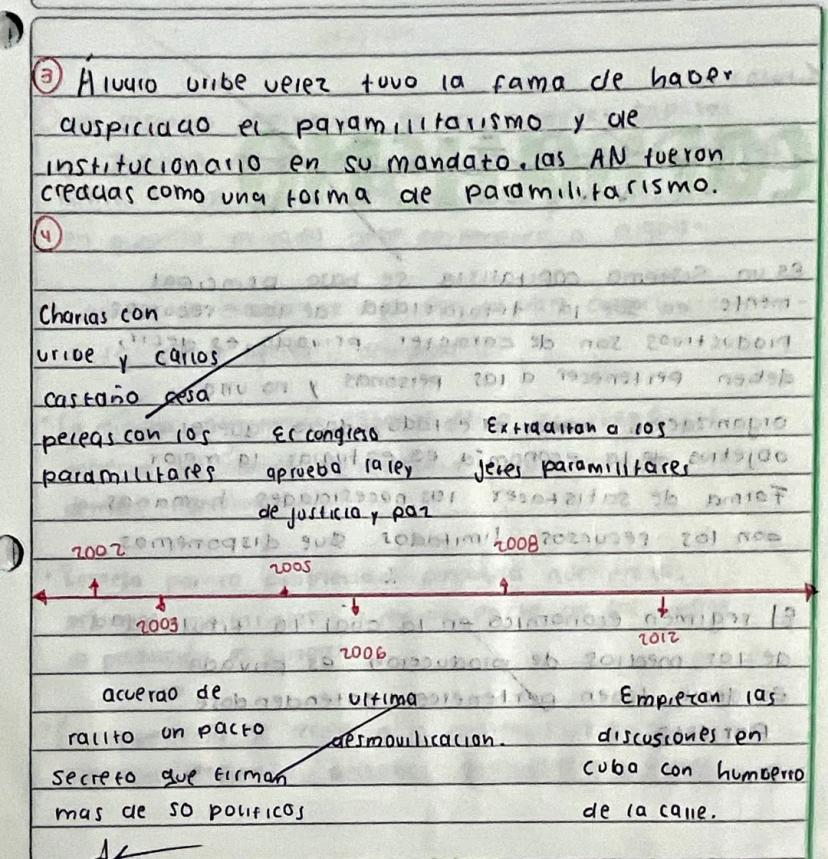 3 Alvaro uribe velez tuvo la fama de haber
auspiciado el paramilitarismo y de
institucionario en su mandato, las AN fueron
creadas como una forma de paramilitarismo.
4
Charlas con
uribe y carlos
castaño cesa
peleas con los
paramilitares
El congreso
aprueba la ley
de justicia y paz
Extraditan a los
jefes paramilitares
2002
2003
2005
2006
2008
2012
acuerdo de
ralito un pacto
secreto que firman
mas de 50 politicos
ultima
desmovilicacion.
Empiezan las
discusiones en
cuba con humberto
de la calle.